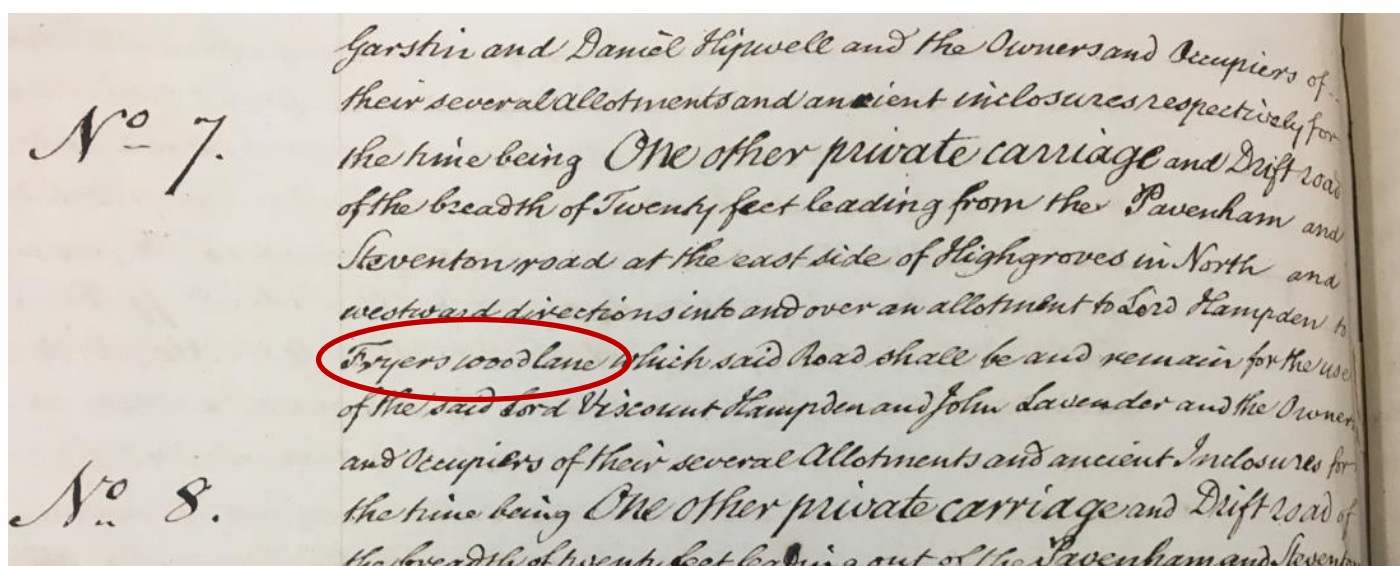 Garstin and Daniel Hipwell and the Owners and Occupiers of
their several allotments and ancient inclosures respectively for
No 7.
the time being One other private carriage and Drift road
of the breadth of Twenty feet leading from the Pavenham and
Steventon road at the east side of Highgroves in North and
westward directions into and over an allotment to Lord Hampden to
Fryers wood lane which said Road shall be and remain for the use
of the said Lord Viscount Hampden and John Lavender and the Owners
and Occupiers of their several Allotments and ancient Inclosures for
No 8.
the time being One other private carriage and Drift road of
the breadth of twenty feet leading out of the Pavenham and Steventon